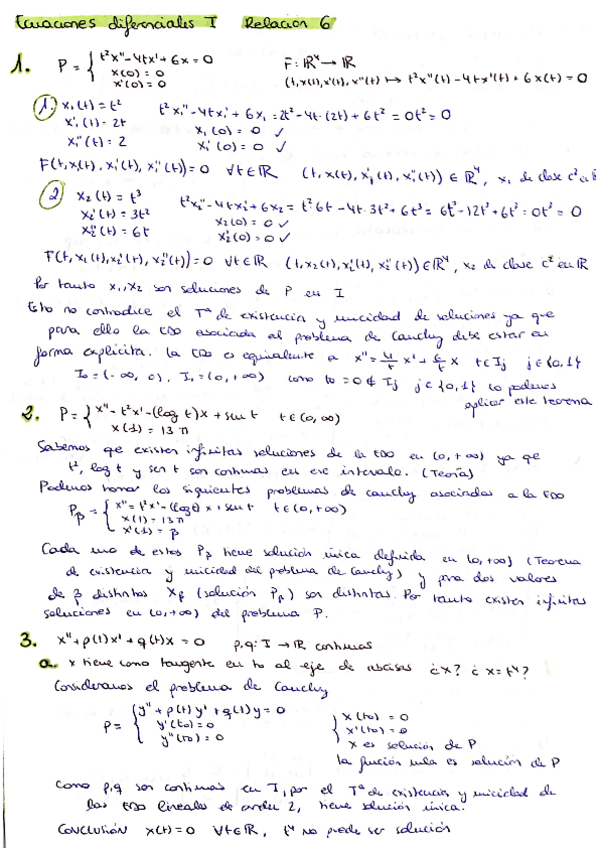 Ecuaciones diferenciales I Relación 6
1. P = { t²x''-4tx'+6x=0 F: ℝ⁴ → ℝ
x(0)=0 (t, x(t), x'(t), x''(t)) ↦ t²x''(t)-4tx'(t)+6x(t)=0
x'(0)=0
1. x₁(t)=t² t²x₁''-4tx₁'+6x₁=2t²-4t·(2t)+6t²=0t²=0
x₁'(t)=2t x₁(0)=0 ✓
x₁''(t)=2 x₁'(0)=0 ✓
F(t,x₁(t), x₁'(t), x₁''(t))=0 ∀t∈ℝ (t, x(t), x₁'(t), x₁''(t)) ∈ ℝ⁴, x₁ de clase c² en ℝ
2 x₂(t)=t³ t²x₂''-4tx₂'+6x₂=t²6t-4t·3t²+6t³=6t³-12t³+6t³=0t³=0
x₂'(t)=3t² x₂(0)=0 ✓
x₂''(t)=6t x₂'(0)=0 ✓
F(t,x₂(t),x₂'(t),x₂''(t))=0 ∀t∈ℝ (t,x₂(t),x₂'(t),x₂''(t))∈ℝ⁴, x₂ de clase c² en ℝ
Por tanto x₁,x₂ son soluciones de P en I
Esto no contradice el Tª de existencia y unicidad de soluciones ya que
para ello la EDO asociada al problema de Cauchy debe estar en
forma explícita. la EDO es equivalente a x''= 4/t x'- 6/t x t∈Ij j∈{0,1}
I₀=(-∞,0), I₁=(0,+∞) como t₀=0∉Ij j∈{0,1} no podemos
aplicar este teorema
2. P={ x''-t²x'-(log t)x+sen t t∈(0,∞)
x(1)=13π
Sabemos que existen infinitas soluciones de la EDO en (0,+∞) ya que
t², log t y sen t son continuas en ese intervalo. (Teoría)
Podemos tomar los siguientes problemas de cauchy asociados a la EDO
Pβ={ x''=t²x'-(log t)x+sen t t∈(0,+∞)
x(1)=13π
x'(1)=β
Cada uno de estos Pβ tiene solución única definida en (0,+∞) (Teorema
de existencia y unicidad del problema de Cauchy) y para dos valores
de β distintos Xβ (solución Pβ) son distintas. Por tanto existen infinitas
soluciones en (0,+∞) del problema P.
3. x''+p(t)x'+q(t)x=0 p,q: I→ℝ continuas
a. x tiene como tangente en t₀ al eje de abcisas ¿x? ¿x=t⁴?
Consideramos el problema de Cauchy
P={ y''+p(t)y'+q(t)y=0 x(t₀)=0
y'(t₀)=0 x'(t₀)=0
y''(t₀)=0 x es solución de P
la función nula es solución de P
Como p,q son continuas en I, por el Tª de existencia y unicidad de
las EDO lineales de orden 2, tiene solución única.
Conclusión x(t)=0 ∀t∈ℝ, t⁴ no puede ser solución